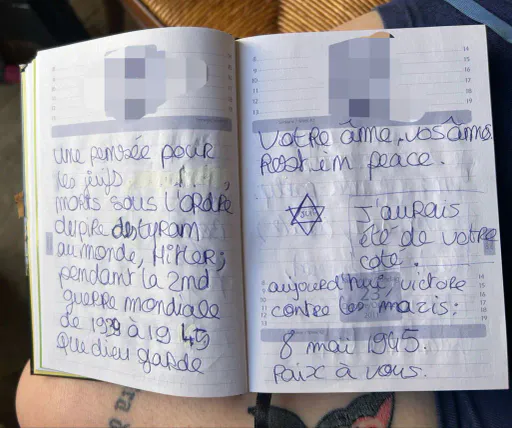 une pensée pour
les juifs
morts sous l'ordre
du pire des tyran
au monde, Hitler,
pendant la 2nd
guerre mondiale
de 1939 à 1945
que dieu garde
votre âme, vos âmes.
Rest in peace.
JUIF
J'aurais
été de votre
coté.
aujourd'hui, victore
contre les nazis:
8 mai 1945.
Paix à vous.